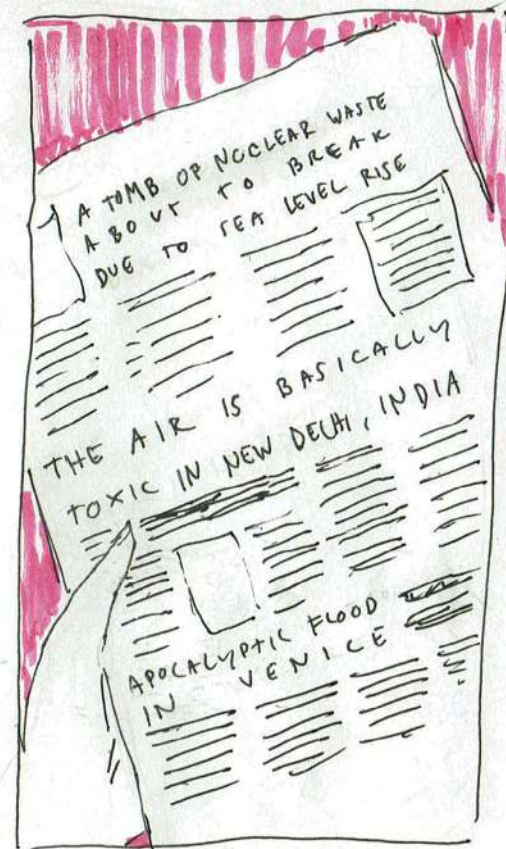 A TOMB OF NUCLEAR WASTE
ABOUT TO BREAK
DUE TO SEA LEVEL RISE
THE AIR IS BASICALLY
TOXIC IN NEW DELHI, INDIA
APOCALYPTIC FLOOD
IN VENICE